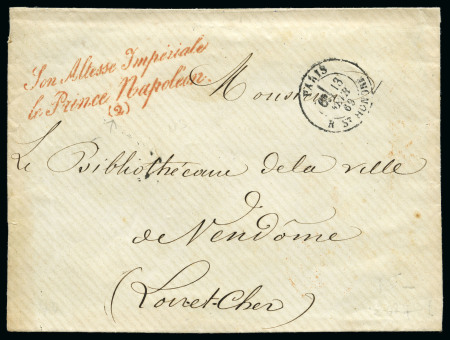 Son Altesse Impériale
le Prince Napoléon.
(2)
Monsieur
PARIS
13
FEVR
69
R. ST HONORE
Le Bibliothécaire de la ville
de Vendôme
(Loir et Cher)